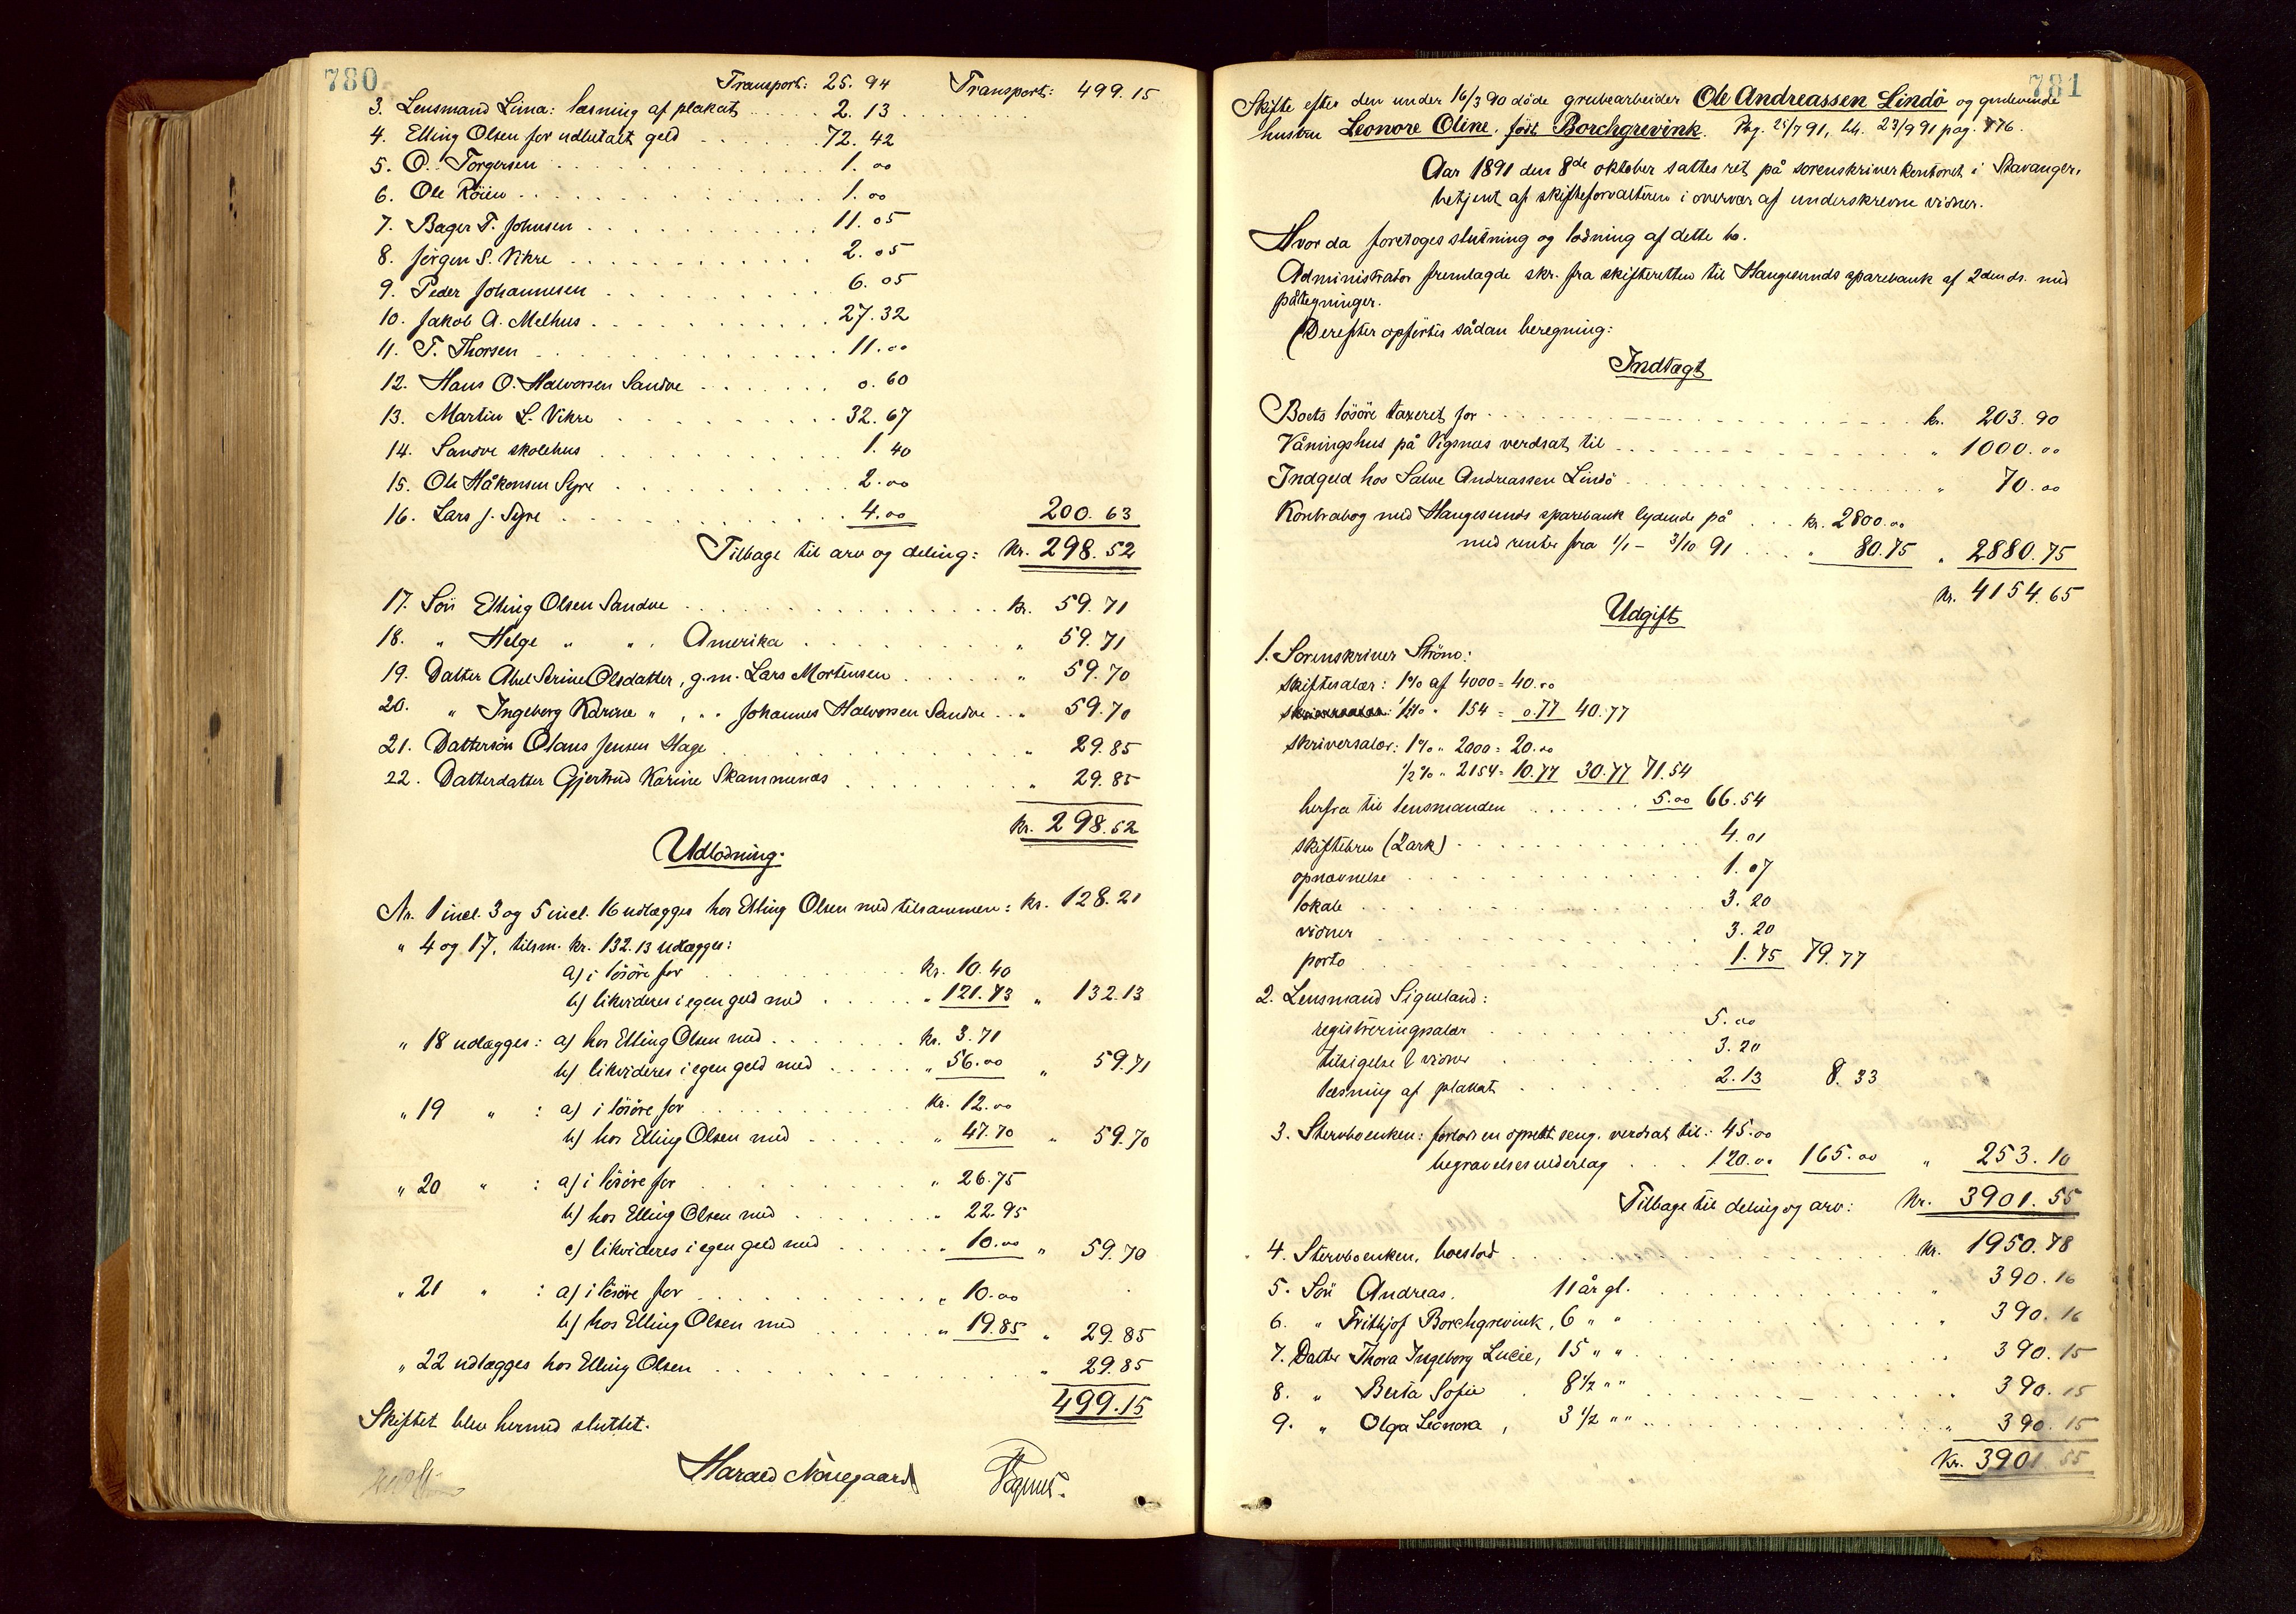 780
Transport: 25.94 Transport: 499.15
3. Lensmand Lima: læsning af plakat 2.13
4. Elling Olsen for udbetalt geld 72.42
5. O. Torgersen 1.00
6. Ole Röien 1.00
7. Bager T. Johnsen 11.05
8. Jörgen S. Vikre 2.05
9. Peder Johannesen 6.05
10. Jakob A. Melhus 27.32
11. T. Thorsen 11.00
12. Hans O. Halvorsen Sandve 0.60
13. Martin L. Vikre 32.67
14. Sandve skolehus 1.40
15. Ole Håkonsen Syre 2.00
16. Lars J. Syre 4.00 200.63
Tilbage til arv og deling: Kr. 298.52
17. Sön Elling Olsen Sandve kr. 59.71
18. " Helge " " . Amerika " 59.71
19. Datter Abel Serine Olsdatter, g.m. Lars Mortensen " 59.70
20. " Ingeborg Karine " , " " Johannes Halvorsen Sandve " 59.70
21. Dattersön Olaus Jensen Hage " 29.85
22. Datterdatter Gjertrud Karine Skammenæs " 29.85
kr. 298.52
Udlodning.
Nr. 1 incl. 3 og 5 incl. 16 udlægges hos Elling Olsen med tilsammen: kr. 128.21
" 4 og 17, tilsm. kr. 132.13 udlægges:
a) i lösöre for kr. 10.40
b) likvideres i egen geld med " 121.73 " 132.13
" 18 udlægges: a) hos Elling Olsen med kr. 3.71
b) likvideres i egen geld med " 56.00 " 59.71
" 19 " : a) i lösöre for kr. 12.00
b) hos Elling Olsen med " 47.70 " 59.70
" 20 " : a) i lösöre for " 26.75
b) hos Elling Olsen med " 22.95
c) likvideres i egen geld med " 10.00 " 59.70
" 21 " : a) i lösöre for " 10.00
b) hos Elling Olsen med " 19.85 " 29.85
" 22 udlægges hos Elling Olsen " 29.85
499.15
Skiftet blev hermed sluttet.
Harald Nörregaard
781
Skifte efter den under 16/3 90 döde grubearbeider Ole Andreassen Lindö og gjenlevende
hustru Leonore Oline, född Borchgrevink. Reg. 25/7 91, beh. 23/9 91 pag. 776.
Aar 1891 den 8de oktober sattes ret på sorenskriverkontoret i Stavanger,
betjent af skifteforvalteren i overvær af underskrevne vidner.
Hvor da foretoges slutning og lodning af dette bo.
Administrator fremlagde skr. fra skifteretten til Haugesunds sparebank af 2den ds. med
påtegninger.
Derefter opförtes sådan beregning:
Indtægt
Boets lösöre taxeret for kr. 203.90
Våningshus på Vigsnes verdsat til " 1000.00
Indgeld hos Salve Andreassen Lindö " 70.00
Kontrabog med Haugesunds sparebank lydende på kr. 2800.00
med renter fra 1/1 – 3/10 91 " 80.75 " 2880.75
kr. 4154.65
Udgift
1. Sorenskriver Ström:
skiftesalær: 1% af 4000 = 40.00
1/2% " 154 = 0.77 40.77
skriversalær: 1% " 2000 = 20.00
1/2% " 2154 = 10.77 30.77 71.54
herfra til lensmanden 5.00 66.54
skiftebrev (2 ark) 4.01
opnævnelse 1.07
lokale 3.20
vidner 3.20
porto 1.75 79.77
2. Lensmand Sigueland:
registreringsalær 5.00
tilsigelse & vidner 3.20
læsning af plakat 2.13 8.33
3. Stervboenken: forlods en opredt seng, verdsat til: 45.00
begravelsesvederlag 120.00 165.00 " 253.10
Tilbage til deling og arv: kr. 3901.55
4. Stervboenken, boeslod kr. 1950.78
5. Sön Andreas, 11 år gl. " 390.16
6. " Frithjof Borchgrevink, 6 " " " 390.16
7. Datter Thora Ingeborg Lucie, 15 " " 390.15
8. " Berta Sofie 8 1/2 " " " 390.15
9. " Olga Leonora, 3 1/2 " " " 390.15
Kr. 3901.55